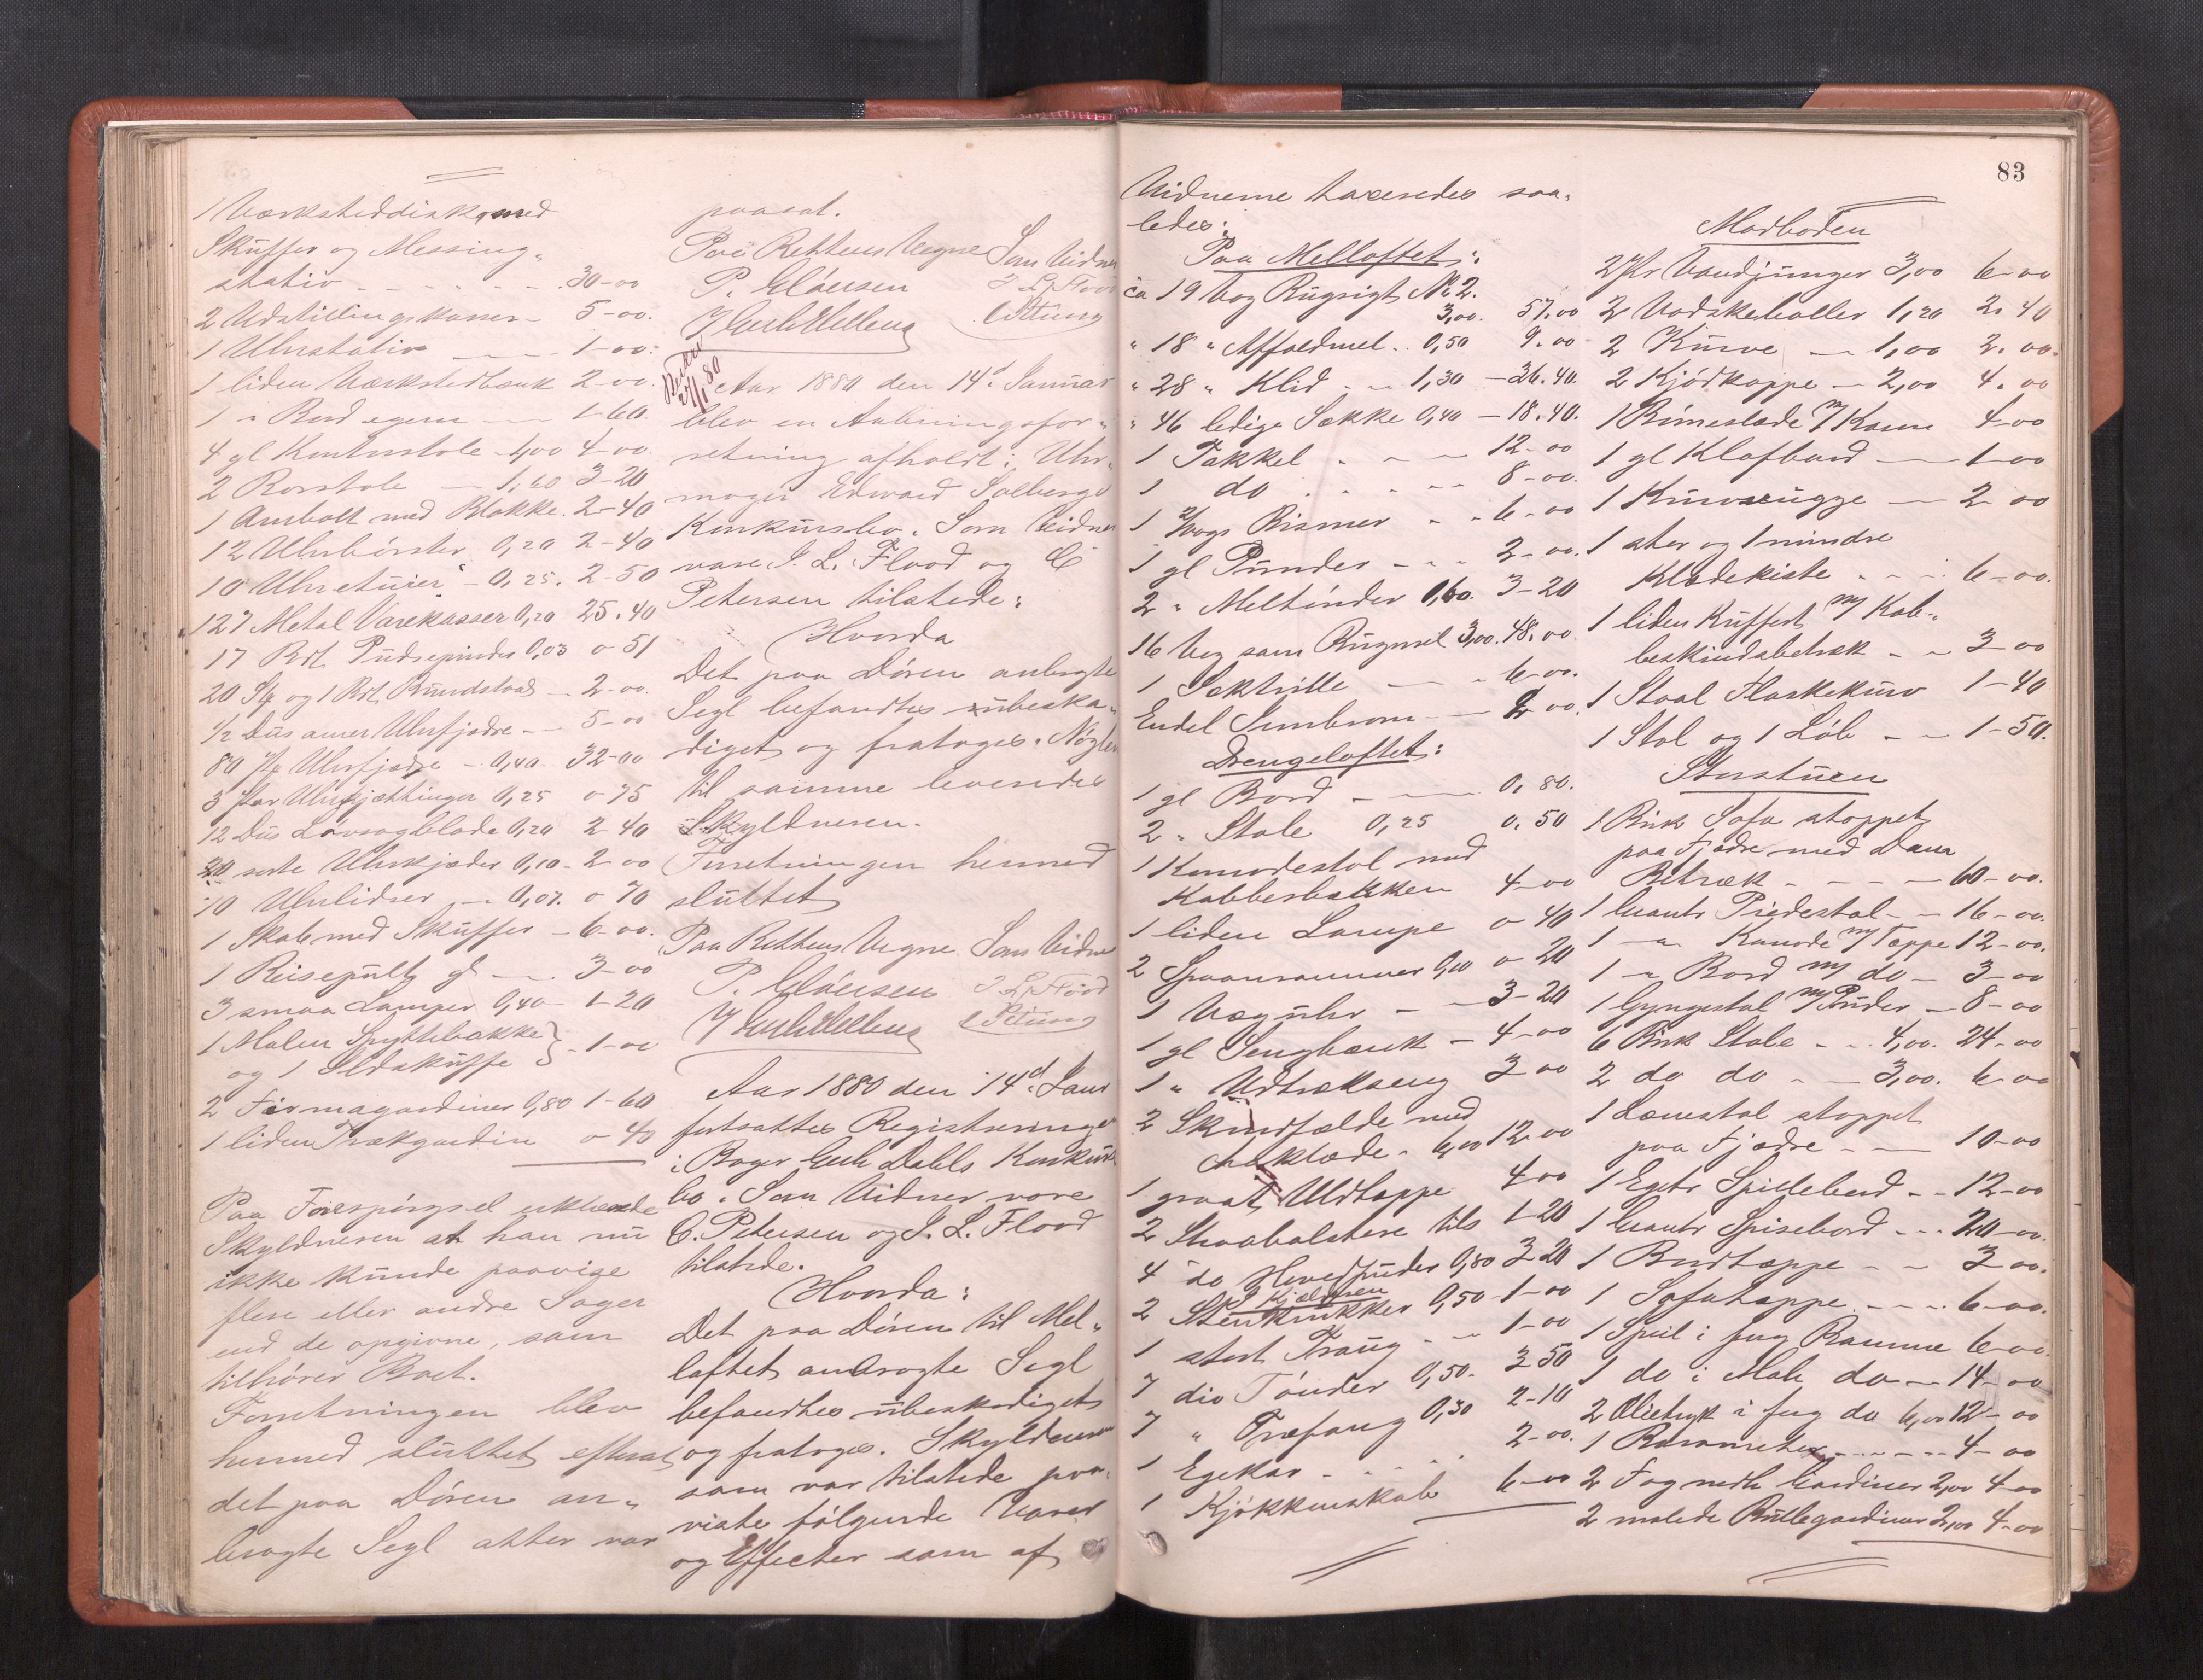 1 Værksteddisk med
Skuffer og Messing„
stativ - - - - 30-00
2 Udstillingskasser - 5-00.
1 Uhrstativ - - 1-00.
1 liden Værkstedbænk 2-00.
1 " Bord - 1-60.
4 gl Kontorstole 1,00 4-00
2 Rorstole - 1,60 3-20
1 Ambolt med Blokke. 2-40
12 Uhrbörster 0,20 2-40
10 Uhretuier - 0,25. 2-50
127 Metal Varekasser 0,20 25.40
17 Bdt Pudsepinder 0,03 0-51
20 St og 1 Bdt Rundstaal - 2-00.
1/2 Dus amer Uhrfjædre - 5-00
80 St Uhrfjædre - 0,40 32-00
3 par Uhrkjættinger 0,25 0-75
12 Dus Løvsagblade 0,20 2-40
20 sorte Uhrkjæder 0,10 - 2-00
10 Uhrlidser - 0,07. 0-70
1 Skab med Skuffer - 6-00.
1 Reisepult gl - - 3-00
3 smaa Lamper 0,40 - 1-20
1 Malm Spyttebakke
og 1 Ildskuffe } - 1-00
2 Firmagardiner 0,80 1-60
1 liden Trækgardin 0-40
Paa Forespørgsel erklærede
Skyldneren at han nu
ikke kunde paavise
flere eller andre Sager
end de opgivne, som
tilhører Boet.
Forretningen blev
hermed sluttet efterat
det paa Døren an„
bragte Segl atter var
paasat.
Paa Rettens Vegne Som Vidner
P. Clausen J. L. Flood
C Petersen
21/1 80
Aar 1880 den 14d Januar
blev en Aabningsfor„
retning afholdt i Uhr„
mager Edvard Solbergs
Konkursbo. Som Vidner
vare J. L. Flood og C
Petersen tilstede:
Hvorda
Det paa Døren anbragte
Segl befandtes ubeska„
diget og fratoges. Nøglen
til samme leveredes
Skyldneren.
Forretningen hermed
sluttet
Paa Rettens Vegne Som Vidner
P. Clausen J. L. Flood
C Petersen
Aar 1880 den 14d Janr
fortsattes Registreringen
i Bager Dahls Konkurs
bo. Som Vidner vare
C. Petersen og J. L. Flood
tilstede.
Hvorda:
Det paa Døren til Mel„
loftet anbragte Segl
befandtes ubeskadiget
og fratoges. Skyldneren
som var tilstede paa„
viste følgende Varer
og Effecter som af
83
Vidnerne taxeredes saa„
ledes:
Paa Melloftet:
ca 19 Vog Rugsigt No 2.
3,00. 57.00
" 18 " Affaldmel. 0,50 9.00
" 28 " Klid - - 1,30 - 36.40.
" 46 ledige Sække 0,40 - 18.40.
1 Takkel - - 12-00
1 do - - - 8-00.
1 2/Vogs Bismer - - 6-00
1 gl Punder - - - 2-00.
2 " Meltönder 1,60. 3-20
16 Vog sam Rugmel 3,00. 48.00
1 Sæktrille - - 6-00.
Endel - 2 00.
Drengeloftet:
1 gl Bord - - 0.80.
2 " Stole 0,25 0.50
1 Komodestol med
Kobberbækken 4-00
1 liden Lampe 0-40
2 0,10 0-20
1 Væguhr - - 3-20
1 gl Sengbænk - 4-00
1 " Udtrækseng 3 00
2 Skindfælde med
Aaklæde. 6,00 12-00
1 graat Uldtæppe 4 00
2 Straabolstere tils 1-20
4 do Hovedpuder 0,80 3 20
I Kjælderen
2 Stenkrukker 0,50 1-00
1 stort Traug - - 1-00
7 dio Tønder 0,50. 3 50
7 " Træfang 0,30 2-10
1 Egekar - - - 2-00.
1 Kjøkkenskab 6-00
Madboden
2 Par Vandjunger 3,00 6-00
2 Vadskeballer 1,20 2.40
2 Kurve - 1,00 2.00.
2 Kjødkoppe - 2,00 4.00
1 Rimeslæde m/ Karm 4-00
1 gl Klafbord - 1-00
1 Kurvvugge - 2 00
1 stor og 1 mindre
Klædekiste - - 6-00.
1 liden Kuffert m/ Kob„
beskindsbetræk - - 3-00
1 Staal Flaskekurv 1-40
1 Stol og 1 Løb - - 1-50.
Storstuen
1 Birk Sofa stoppet
paa Fjædre med Dam
Betræk - - - - 60-00.
1 Piedestal - - 16-00.
1 " Komode m/ Tæppe 12-00.
1 " Bord m/ do - 3-00
1 Gyngestol m/ Puder - 8-00
6 Birk Stole - - 4,00. 24-00
2 do do - - 3,00. 6-00
1 Lænestol stoppet
paa Fjædre - - 10-00
1 Egetr Spillebord - - 12-00
1 Spisebord - - - 20-00.
1 Bordtæppe - - 3 00.
1 Sofatæppe - - - 6-00.
1 Speil i fug Ramme 6-00.
1 do i Mah do - 14-00
2 Olietryk i fug do 6,00 12-00
1 Barometer - - - 4-00
2 Fag nedh Gardiner 2,00 4-00
2 malede Rullegardiner 2,00 4-00